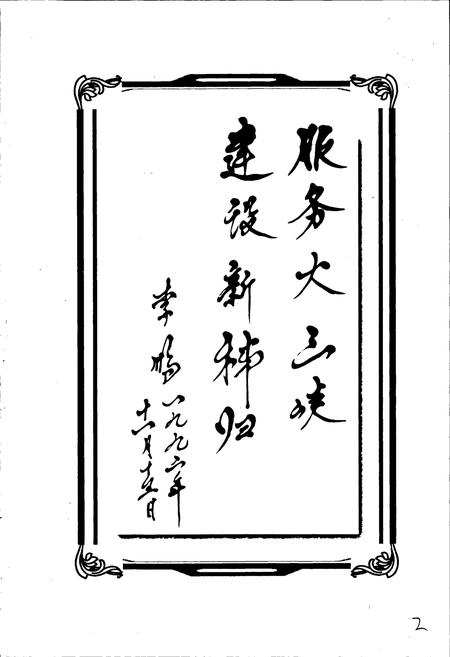 服务大三峡
建设新秭归
李鹏 一九九年
十月日
2